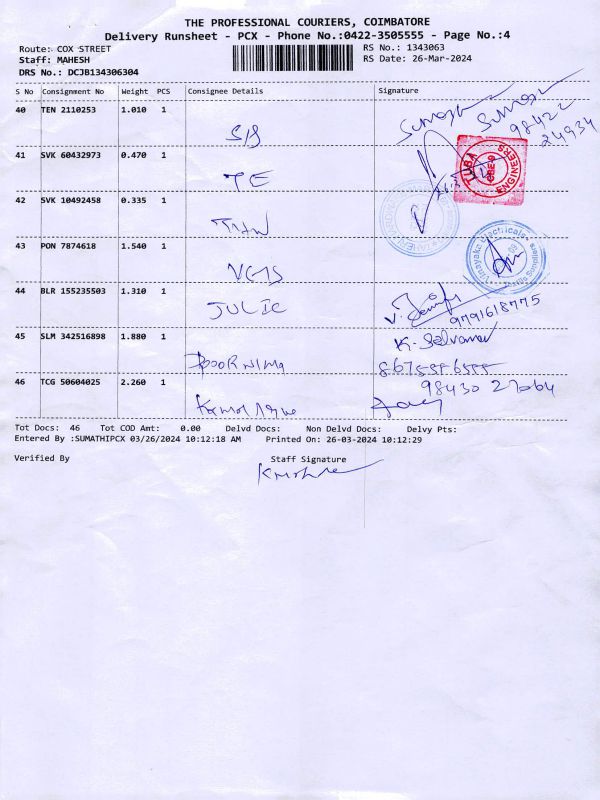 THE PROFESSIONAL COURIERS, COIMBATORE
Delivery Runsheet - PCX - Phone No.:0422-3505555 - Page No.:4
Route: COX STREET RS No.: 1343063
Staff: MAHESH RS Date: 26-Mar-2024
DRS No.: DCJB134306304
S No Consignment No Weight PCS Consignee Details Signature
40 TEN 2110253 1.010 1
98422
24934
41 SVK 60432973 0.470 1
TUBA ENGINEERS
TE
42 SVK 10492458 0.335 1
43 PON 7874618 1.540 1
Vinayaka Electricals
44 BLR 155235503 1.310 1
JULIE
9791618775
45 SLM 342516898 1.880 1
K. Selvamani
POORNIMA
46 TCG 50604025 2.260 1
98430 27064
Tot Docs: 46 Tot COD Amt: 0.00 Delvd Docs: Non Delvd Docs: Delvy Pts:
Entered By :SUMATHIPCX 03/26/2024 10:12:18 AM Printed On: 26-03-2024 10:12:29
Verified By Staff Signature